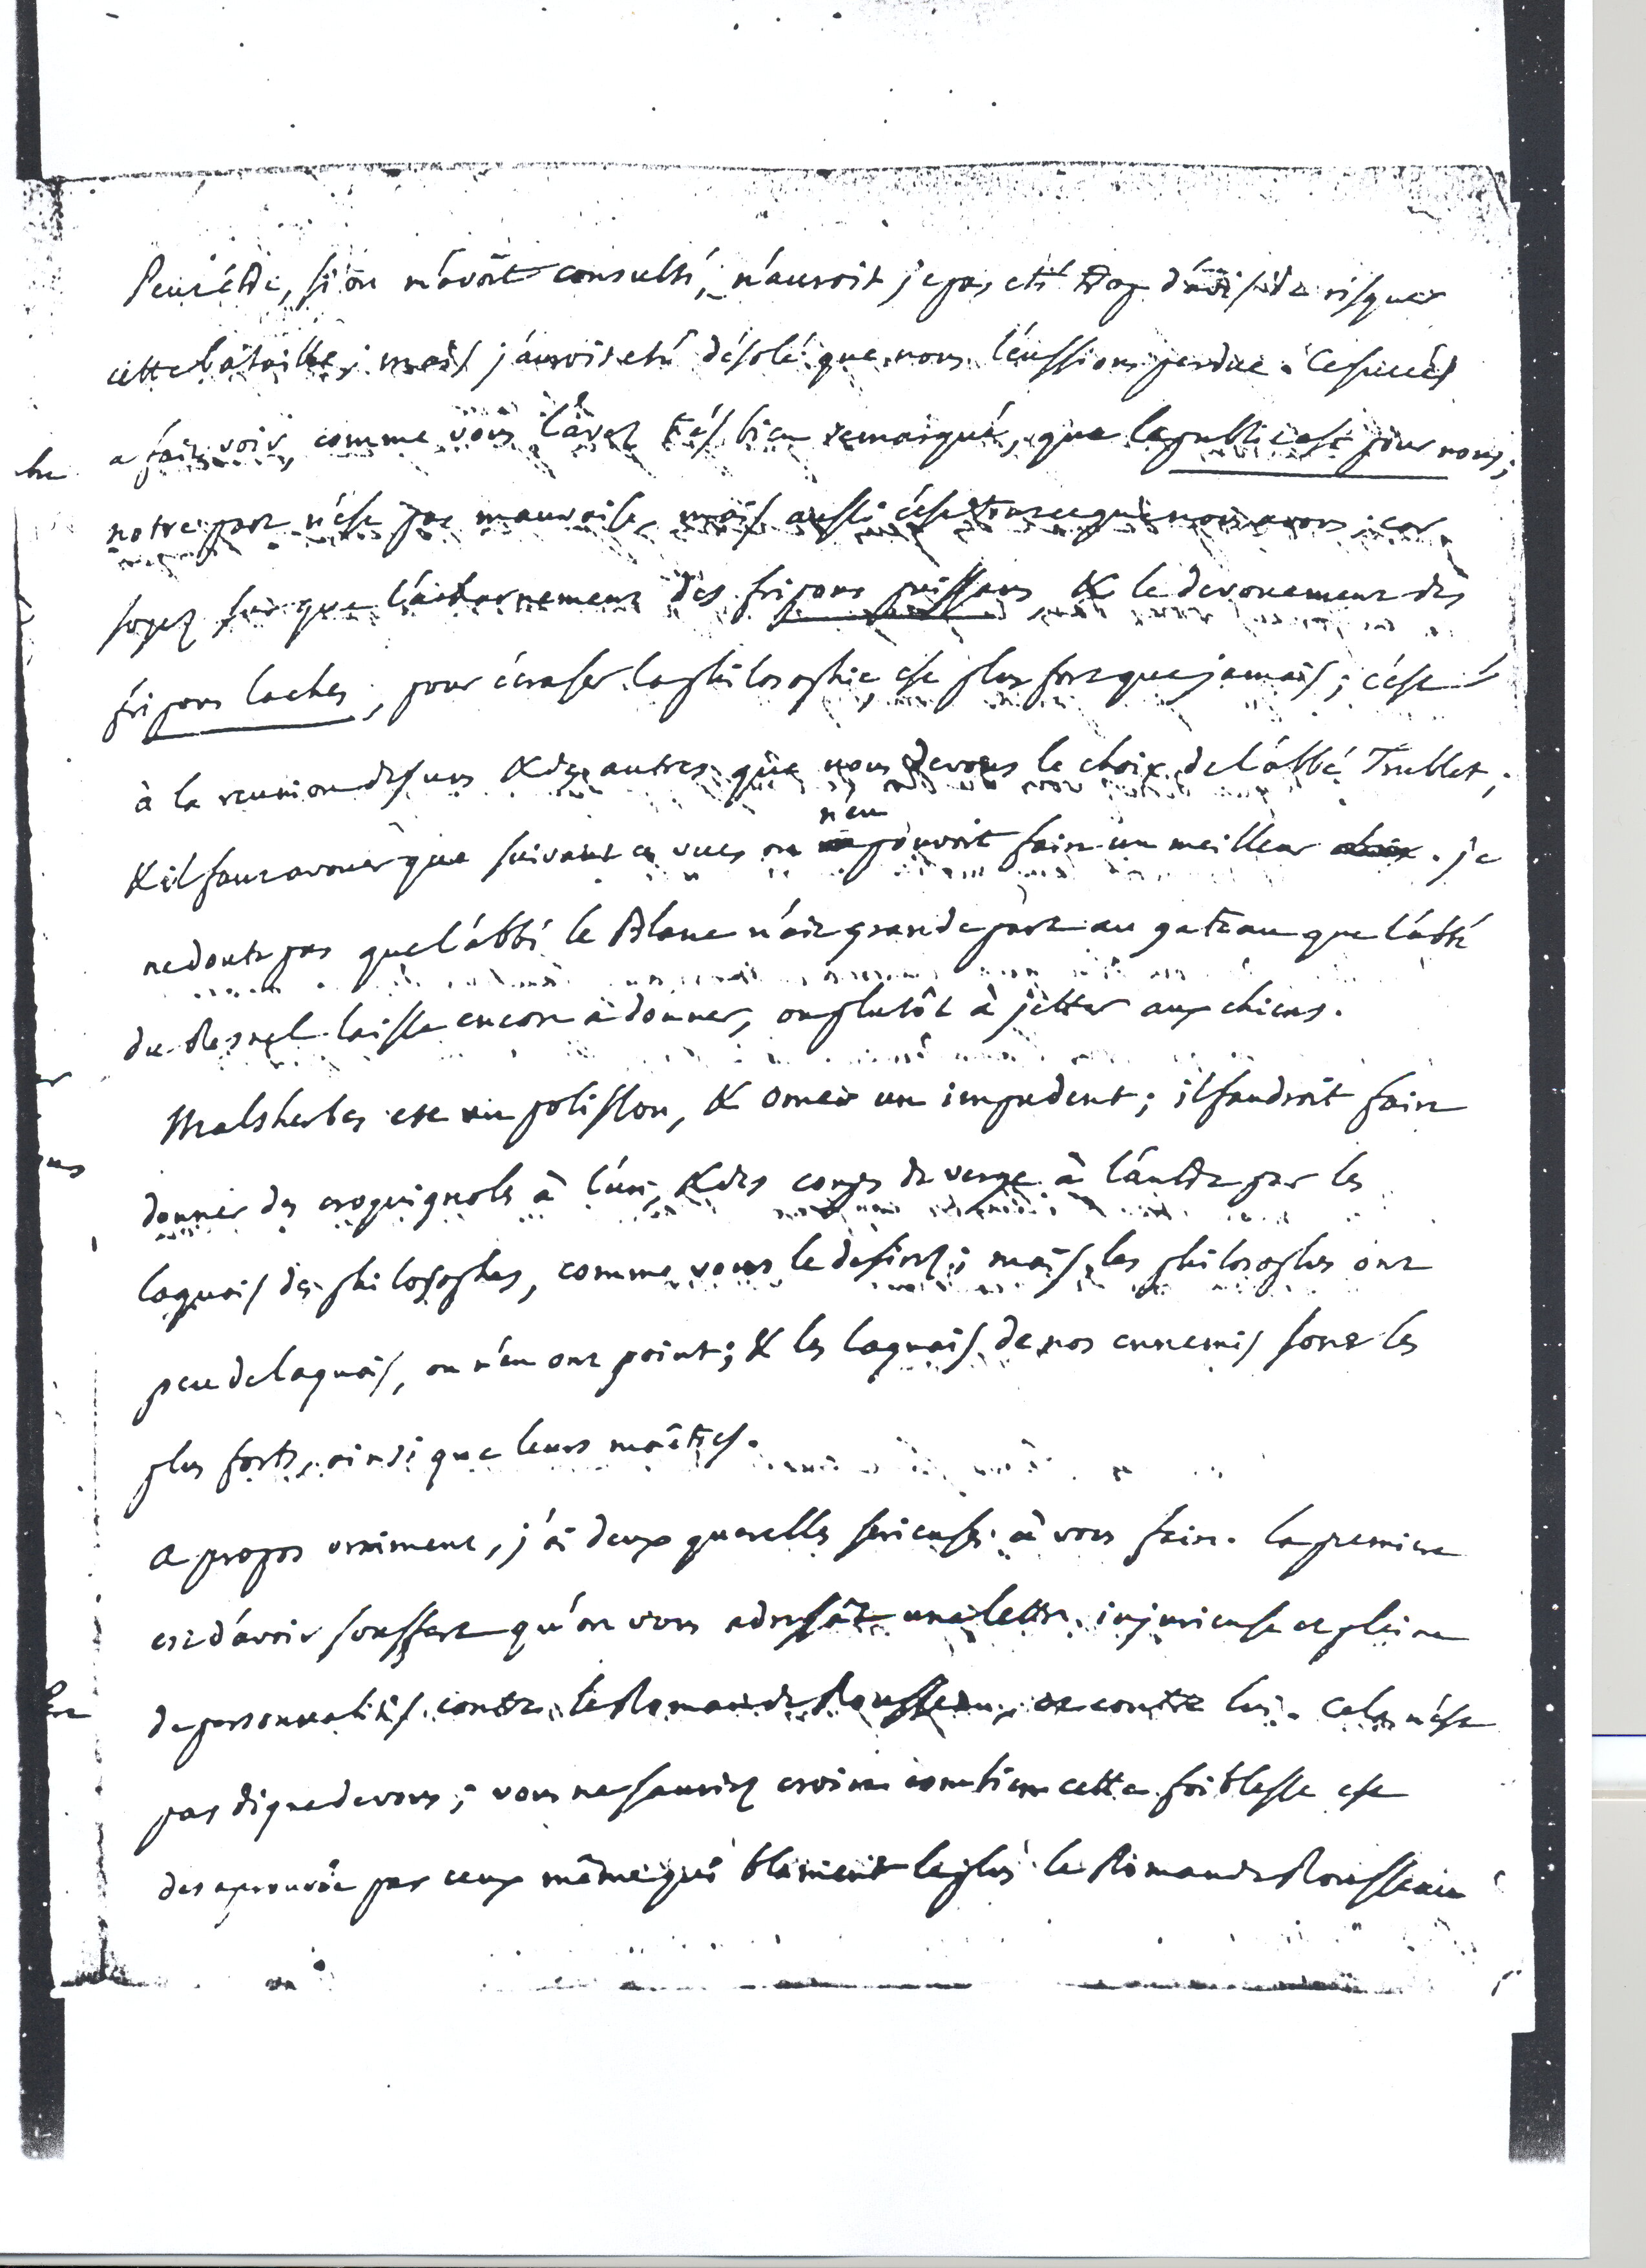 Peut être, si on m'avoit consulté, n'aurois je pas eté trop d'avis de risquer
cette bataille; mais j'aurois eté désolé que nous l'eussions perdue. Ce succès
a fait voir, comme vous l'avez très bien remarqué, que le public est pour nous;
notre part n'est pas mauvaise, mais aussi c'est tout ce que nous avons; car
soyez sur que l'acharnement des fripons puissans & le devouement des
fripons laches, pour écraser la philosophie, est plus fort que jamais; c'est
à la reunion des uns & des autres que nous devons le choix de l'abbé Trublet;
& il faut avouer que suivant ces vues on n'en pouvoit faire un meilleur. je
ne doute pas que l'abbé le Blanc n'ait grande part au gateau que l'abbé
du Resnel laisse encore à donner, ou plutôt à jetter aux chiens.
Malsherbes est un polisson, & Omer un impudent; il faudroit faire
donner des croquignoles à l'un, & des coups de verge à l'autre par les
laquais des philosophes, comme vous le desirez; mais les philosophes ont
peu de laquais, ou n'en ont point; & les laquais de nos ennemis sont les
plus forts, ainsi que leurs maîtres.
A propos vraiment, j'ai deux querelles serieuses à vous faire. la premiere
est d'avoir souffert qu'on vous adressât une lettre injurieuse et pleine
de personnalités contre le Roman de Rousseau, et contre lui. Cela n'est
pas digne de vous; vous ne sauriez croire combien cette foiblesse est
desaprouvée par ceux même qui blament le plus le Roman de Rousseau